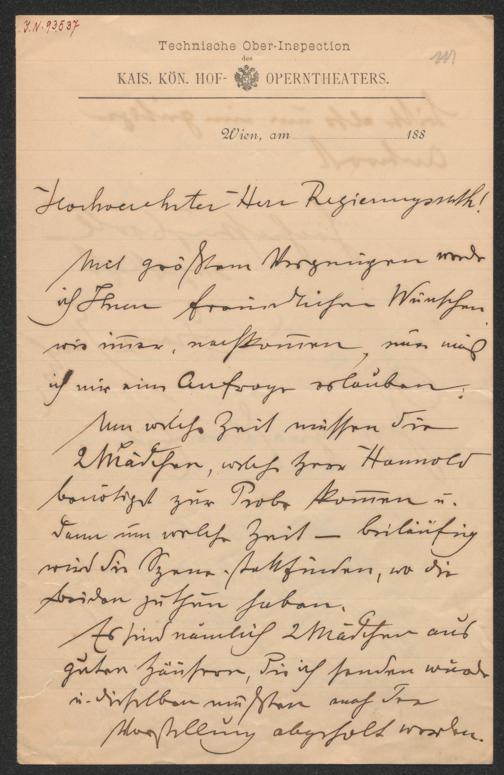 J.N. 93537
Technische Ober-Inspection
des
KAIS. KÖN. HOF- OPERNTHEATERS.
Wien, am 188
Hochverehrter Herr Regierungsrath!
Mit größtem Vergnügen werde
ich Ihren freundlichen Wünschen
wie immer, nachkommen, nur muß
ich mir eine Anfrage erlauben:
Um welche Zeit müssen die
2 Mädchen, welche Herr
benötigt zur Probe kommen u.
dann um welche Zeit – beiläufig
wird die Szene stattfinden, wo die
beiden zu thun haben.
Es sind nämlich 2 Mädchen aus
guten Häusern, die ich senden würde
u. dieselben müßten nach der
Vorstellung abgeholt werden.